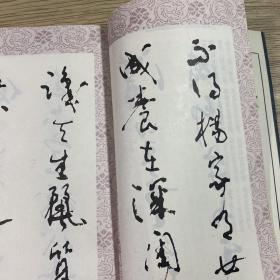 不得楊家有女
成養在深閨
識天生麗質